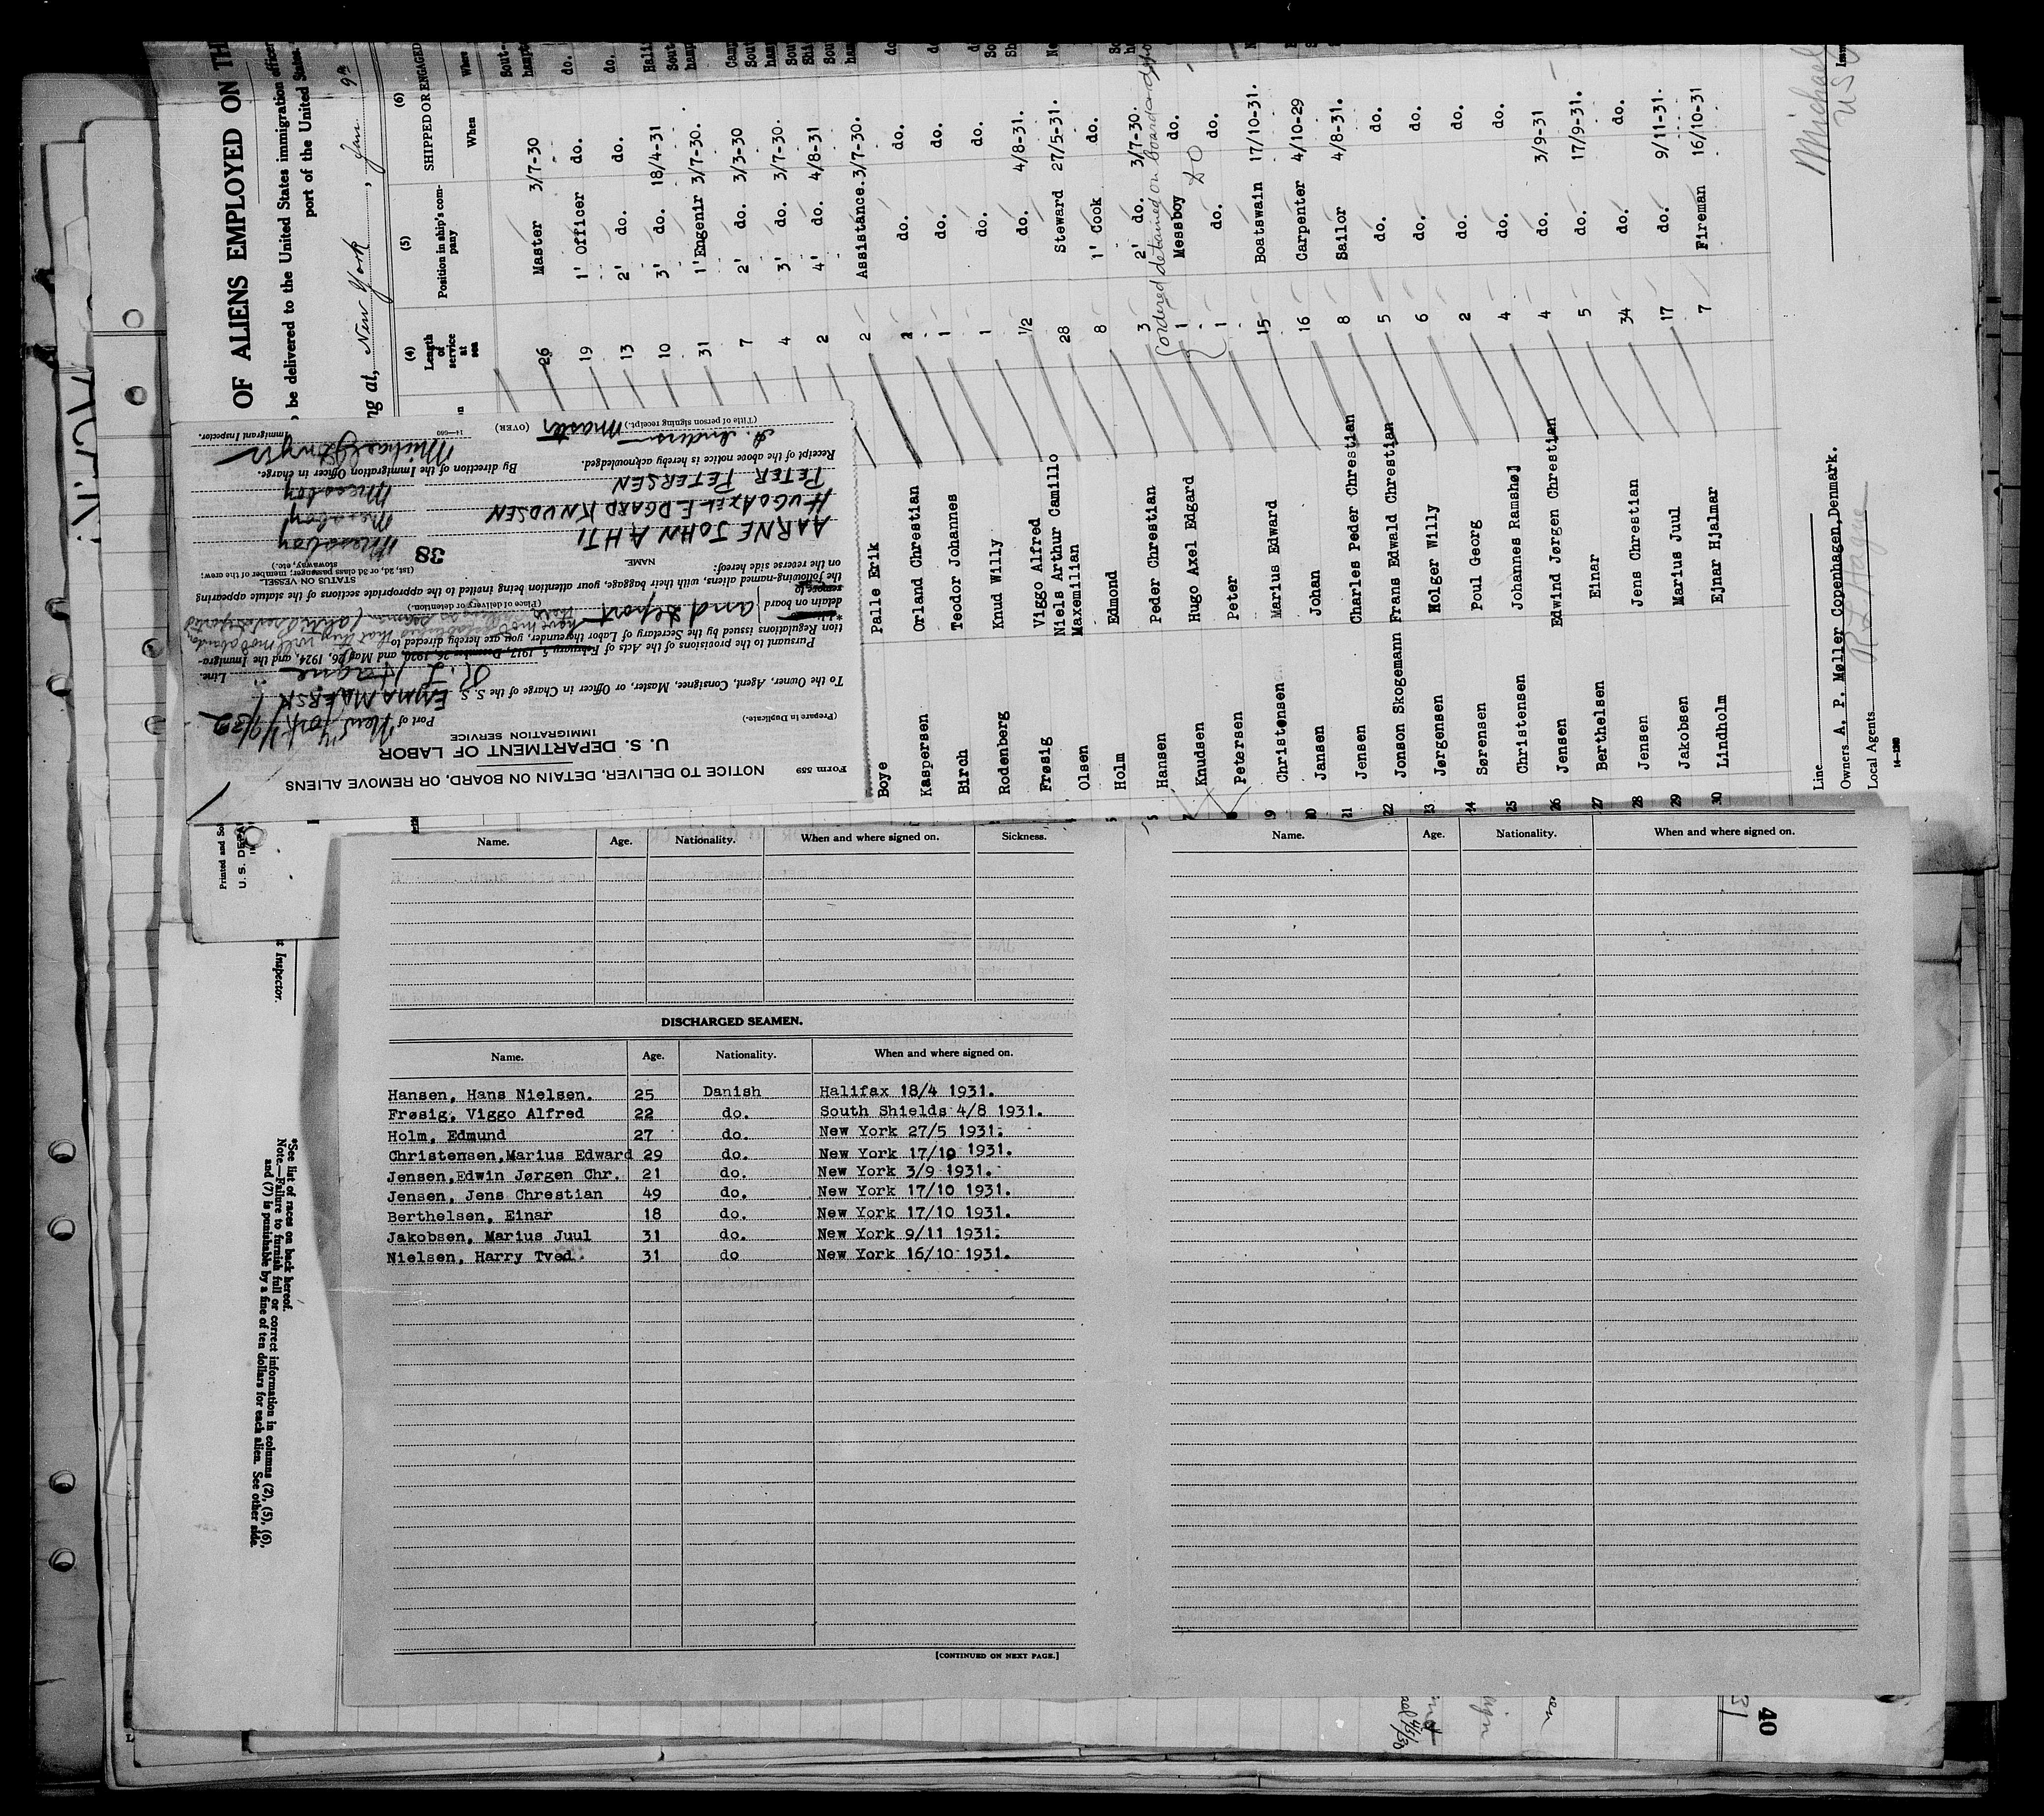 OF ALIENS EMPLOYED ON TH
be delivered to the United States immigration officer
port of the United States
ng at, New York, Jan. 9th
(4) Length of service at sea
(5) Position in ship's company
(6) SHIPPED OR ENGAGED
When
Where
26 Master 3/7-30
19 1' Officer do. do.
13 2' do. do. do.
10 3' do. 18/4-31
31 1' Engenir 3/7-30.
7 2' do. 3/3-30
4 3' do. 3/7-30.
2 4' do. 4/8-31
Boye Palle Erik 2 Assistance. 3/7-30.
Kaspersen Orland Chrestian do. do.
Birch Teodor Johannes 1 do. do.
Rodenberg Knud Willy 1 do. do.
Frøsig Viggo Alfred 1/2 do. 4/8-31.
Olsen Niels Arthur Camillo Maxemilian 28 Steward 27/5-31.
Holm Edmond 8 1' Cook do.
Hansen Peder Chrestian 3 2' do. 3/7-30
Knudsen Hugo Axel Edgard 1 Messboy do.
Petersen Peter 1 do. do.
ordered detained on board
19 Christensen Marius Edward 15 Boatswain 17/10-31.
20 Jansen Johan 16 Carpenter 4/10-29
21 Jensen Charles Peder Chrestian 8 Sailor 4/8-31.
22 Jonson Skogemann Frans Edwald Chrestian 5 do. do.
23 Jørgensen Holger Willy 6 do. do.
24 Sørensen Poul Georg 2 do. do.
25 Christensen Johannes Ramshøj 4 do. do.
26 Jensen Edwind Jørgen Chrestian 4 do. 3/9-31
27 Berthelsen Einar 5 do. 17/9-31.
28 Jensen Jens Chrestian 34 do. do.
29 Jakobsen Marius Juul 17 do. 9/11-31.
30 Lindholm Ejnar Hjalmar 7 Fireman 16/10-31
Line
Owners A. P. Møller Copenhagen, Denmark.
Local Agents R L Hague
Michael
Form 559
NOTICE TO DELIVER, DETAIN ON BOARD, OR REMOVE ALIENS
U. S. DEPARTMENT OF LABOR
IMMIGRATION SERVICE
(Prepare in Duplicate.)
Port of New York 1/9/32
To the Owner, Agent, Consignee, Master, or Officer in Charge of the S. S. EMMA MAERSK
R. L. Hague Line.
Pursuant to the provisions of the Acts of February 5, 1917, December 26, 1920, and May 26, 1924, and the Immigra-
tion Regulations issued by the Secretary of Labor thereunder, you are hereby directed to
detain on board and report
(Place of delivery or detention.)
the following-named aliens, with their baggage, your attention being invited to the appropriate sections of the statute appearing
on the reverse side hereof:
NAME.
STATUS ON VESSEL
(1st, 2d, or 3d class passenger; member of the crew; stowaway, etc.)
38
AARNE JOHN AHTI Messboy
HUGO AXEL EDGARD KNUDSEN Messboy
PETER PETERSEN Messboy
By direction of the Immigration Officer in charge.
Receipt of the above notice is hereby acknowledged.
Immigrant Inspector.
Master
(Title of person signing receipt.)
(OVER)
Inspector.
*See list of races on back hereof.
Note.—Failure to furnish full or correct information in columns (2), (5), (6),
and (7) is punishable by a fine of ten dollars for each alien. See other side.
Name. Age. Nationality. When and where signed on. Sickness.
DISCHARGED SEAMEN.
Name. Age. Nationality. When and where signed on.
Hansen, Hans Nielsen. 25 Danish Halifax 18/4 1931.
Frøsig, Viggo Alfred 22 do. South Shields 4/8 1931.
Holm, Edmund 27 do. New York 27/5 1931.
Christensen,Marius Edward 29 do. New York 17/10 1931.
Jensen,Edwin Jørgen Chr. 21 do. New York 3/9 1931.
Jensen, Jens Chrestian 49 do. New York 17/10 1931.
Berthelsen, Einar 18 do. New York 17/10 1931.
Jakobsen, Marius Juul 31 do. New York 9/11 1931.
Nielsen, Harry Tved. 31 do New York 16/10 1931.
[CONTINUED ON NEXT PAGE.]
Name. Age. Nationality. When and where signed on.
40